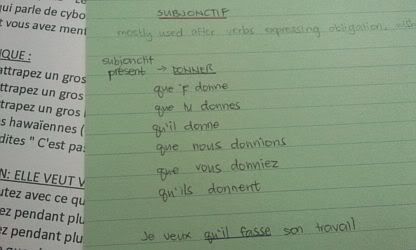 qui parle de cybo
t vous avez ment
QUE :
attrapez un gros
attrapez un gros
trapez un gros
s hawaïennes (
dites " C'est pa
N: ELLE VEUT V
utez avec ce qu
ez pendant plu
ez pendant plu
SUBJONCTIF
mostly used after verbs expressing obligation, with
subjonctif
présent → DONNER
que je donne
que tu donnes
qu'il donne
que nous donnions
que vous donniez
qu'ils donnent
Je veux qu'il fasse son travail